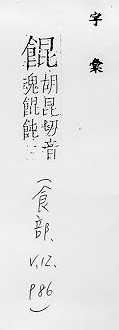 字彙
餛
胡昆切音
魂餛飩
(食部、
V.12.
P86)